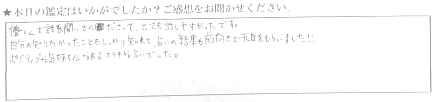 ★本日の鑑定はいかがでしたか?ご感想をお聞かせください。
優しく話を聞いてくださって、とても話しやすかったです。
自分の知りたかったこともしっかり知れて、占いの結果も前向きで元気をもらいました!!
ポジティブな気持ちになれるステキな占いでした。